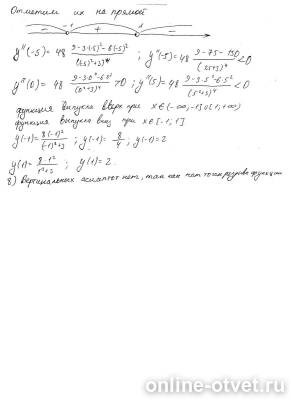 Отметим их на прямой
− −1 + 1 −
y''(-5) = 48 (9-3·(-5)²-6(-5)²)/((-5)²+3)⁴ ; y''(-5) = 48 (9-75-150)/((25+3)⁴) < 0
y''(0) = 48 (9-3·0⁴-6·0²)/((0²+3)⁴) > 0 ; y''(5) = 48 (9-3·5²-6·5²)/((5²+3)⁴) < 0
функция выпукла вверх при x∈(-∞,-1]∪[1;+∞)
функция выпукла вниз при x∈[-1;1]
y(-1) = 8(-1)²/((-1)²+3) ; y(-1) = 8/4 ; y(-1) = 2
y(1) = 8·1²/(1²+3) ; y(1) = 2
8) Вертикальных асимптот нет, так как нет точек разрыва функции
online-otvet.ru